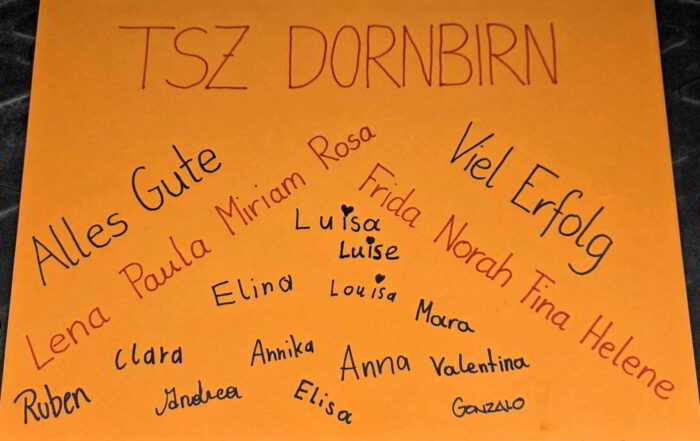 TSZ DORNBIRN
Alles Gute
Viel Erfolg
Lena Paula Miriam Rosa
Frida Norah Fina Helene
Luisa
Luise
Elina
Louisa
Mara
Clara
Annika
Anna
Valentina
Ruben
Andrea
Elisa
GONZALO